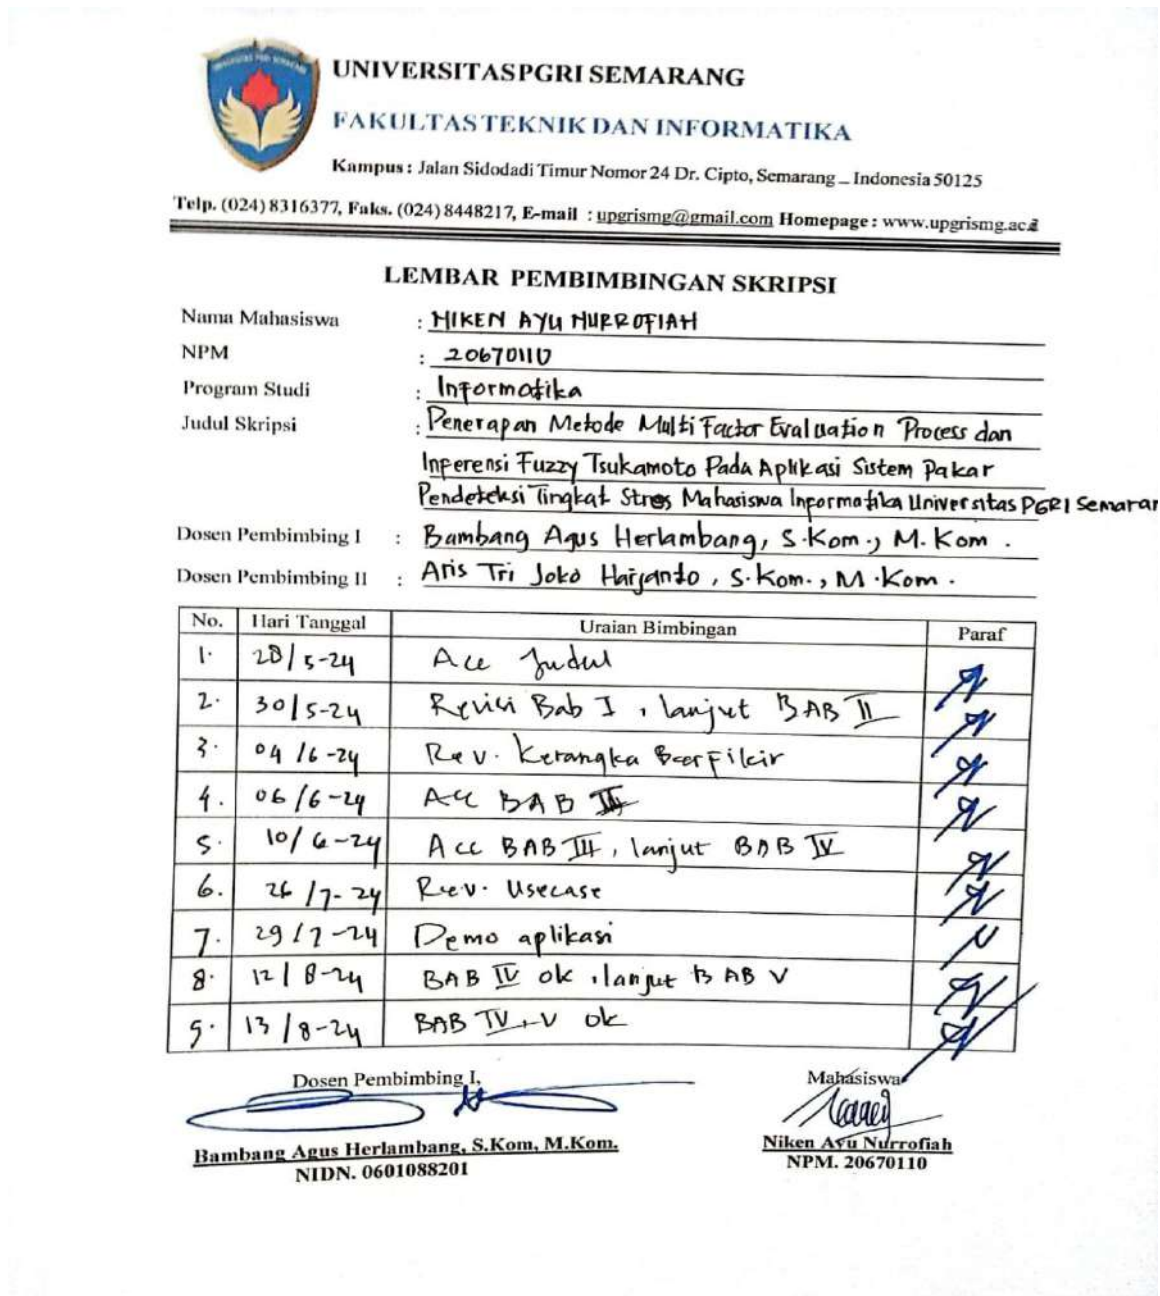 UNIVERSITASPGRI SEMARANG
FAKULTAS TEKNIK DAN INFORMATIKA
Kampus : Jalan Sidodadi Timur Nomor 24 Dr. Cipto, Semarang – Indonesia 50125
Telp. (024) 8316377, Faks. (024) 8448217, E-mail : upgrismg@gmail.com Homepage : www.upgrismg.ac.
LEMBAR PEMBIMBINGAN SKRIPSI
Nama Mahasiswa : NIKEN AYU NURROFIAH
NPM : 20670110
Program Studi : Informatika
Judul Skripsi : Penerapan Metode Multi Factor Evaluation Process dan
Inferensi Fuzzy Tsukamoto Pada Aplikasi Sistem Pakar
Pendeteksi Tingkat Stres Mahasiswa Informatika Universitas PGRI Semaran
Dosen Pembimbing I : Bambang Agus Herlambang, S.Kom., M.Kom.
Dosen Pembimbing II : Aris Tri Joko Harjanto, S.Kom., M.Kom.
No. Hari Tanggal Uraian Bimbingan Paraf
1. 28/5-24 Acc Judul
2. 30/5-24 Revisi Bab I, lanjut BAB II
3. 04/6-24 Rev. Kerangka Berfikir
4. 06/6-24 Acc BAB
5. 10/6-24 Acc BAB III, lanjut BAB IV
6. 26/7-24 Rev. Usecase
7. 29/7-24 Demo aplikasi
8. 12/8-24 BAB IV ok, lanjut BAB V
9. 13/8-24 BAB IV, V ok
Dosen Pembimbing I, Mahasiswa
Bambang Agus Herlambang, S.Kom, M.Kom. Niken Ayu Nurrofiah
NIDN. 0601088201 NPM. 20670110